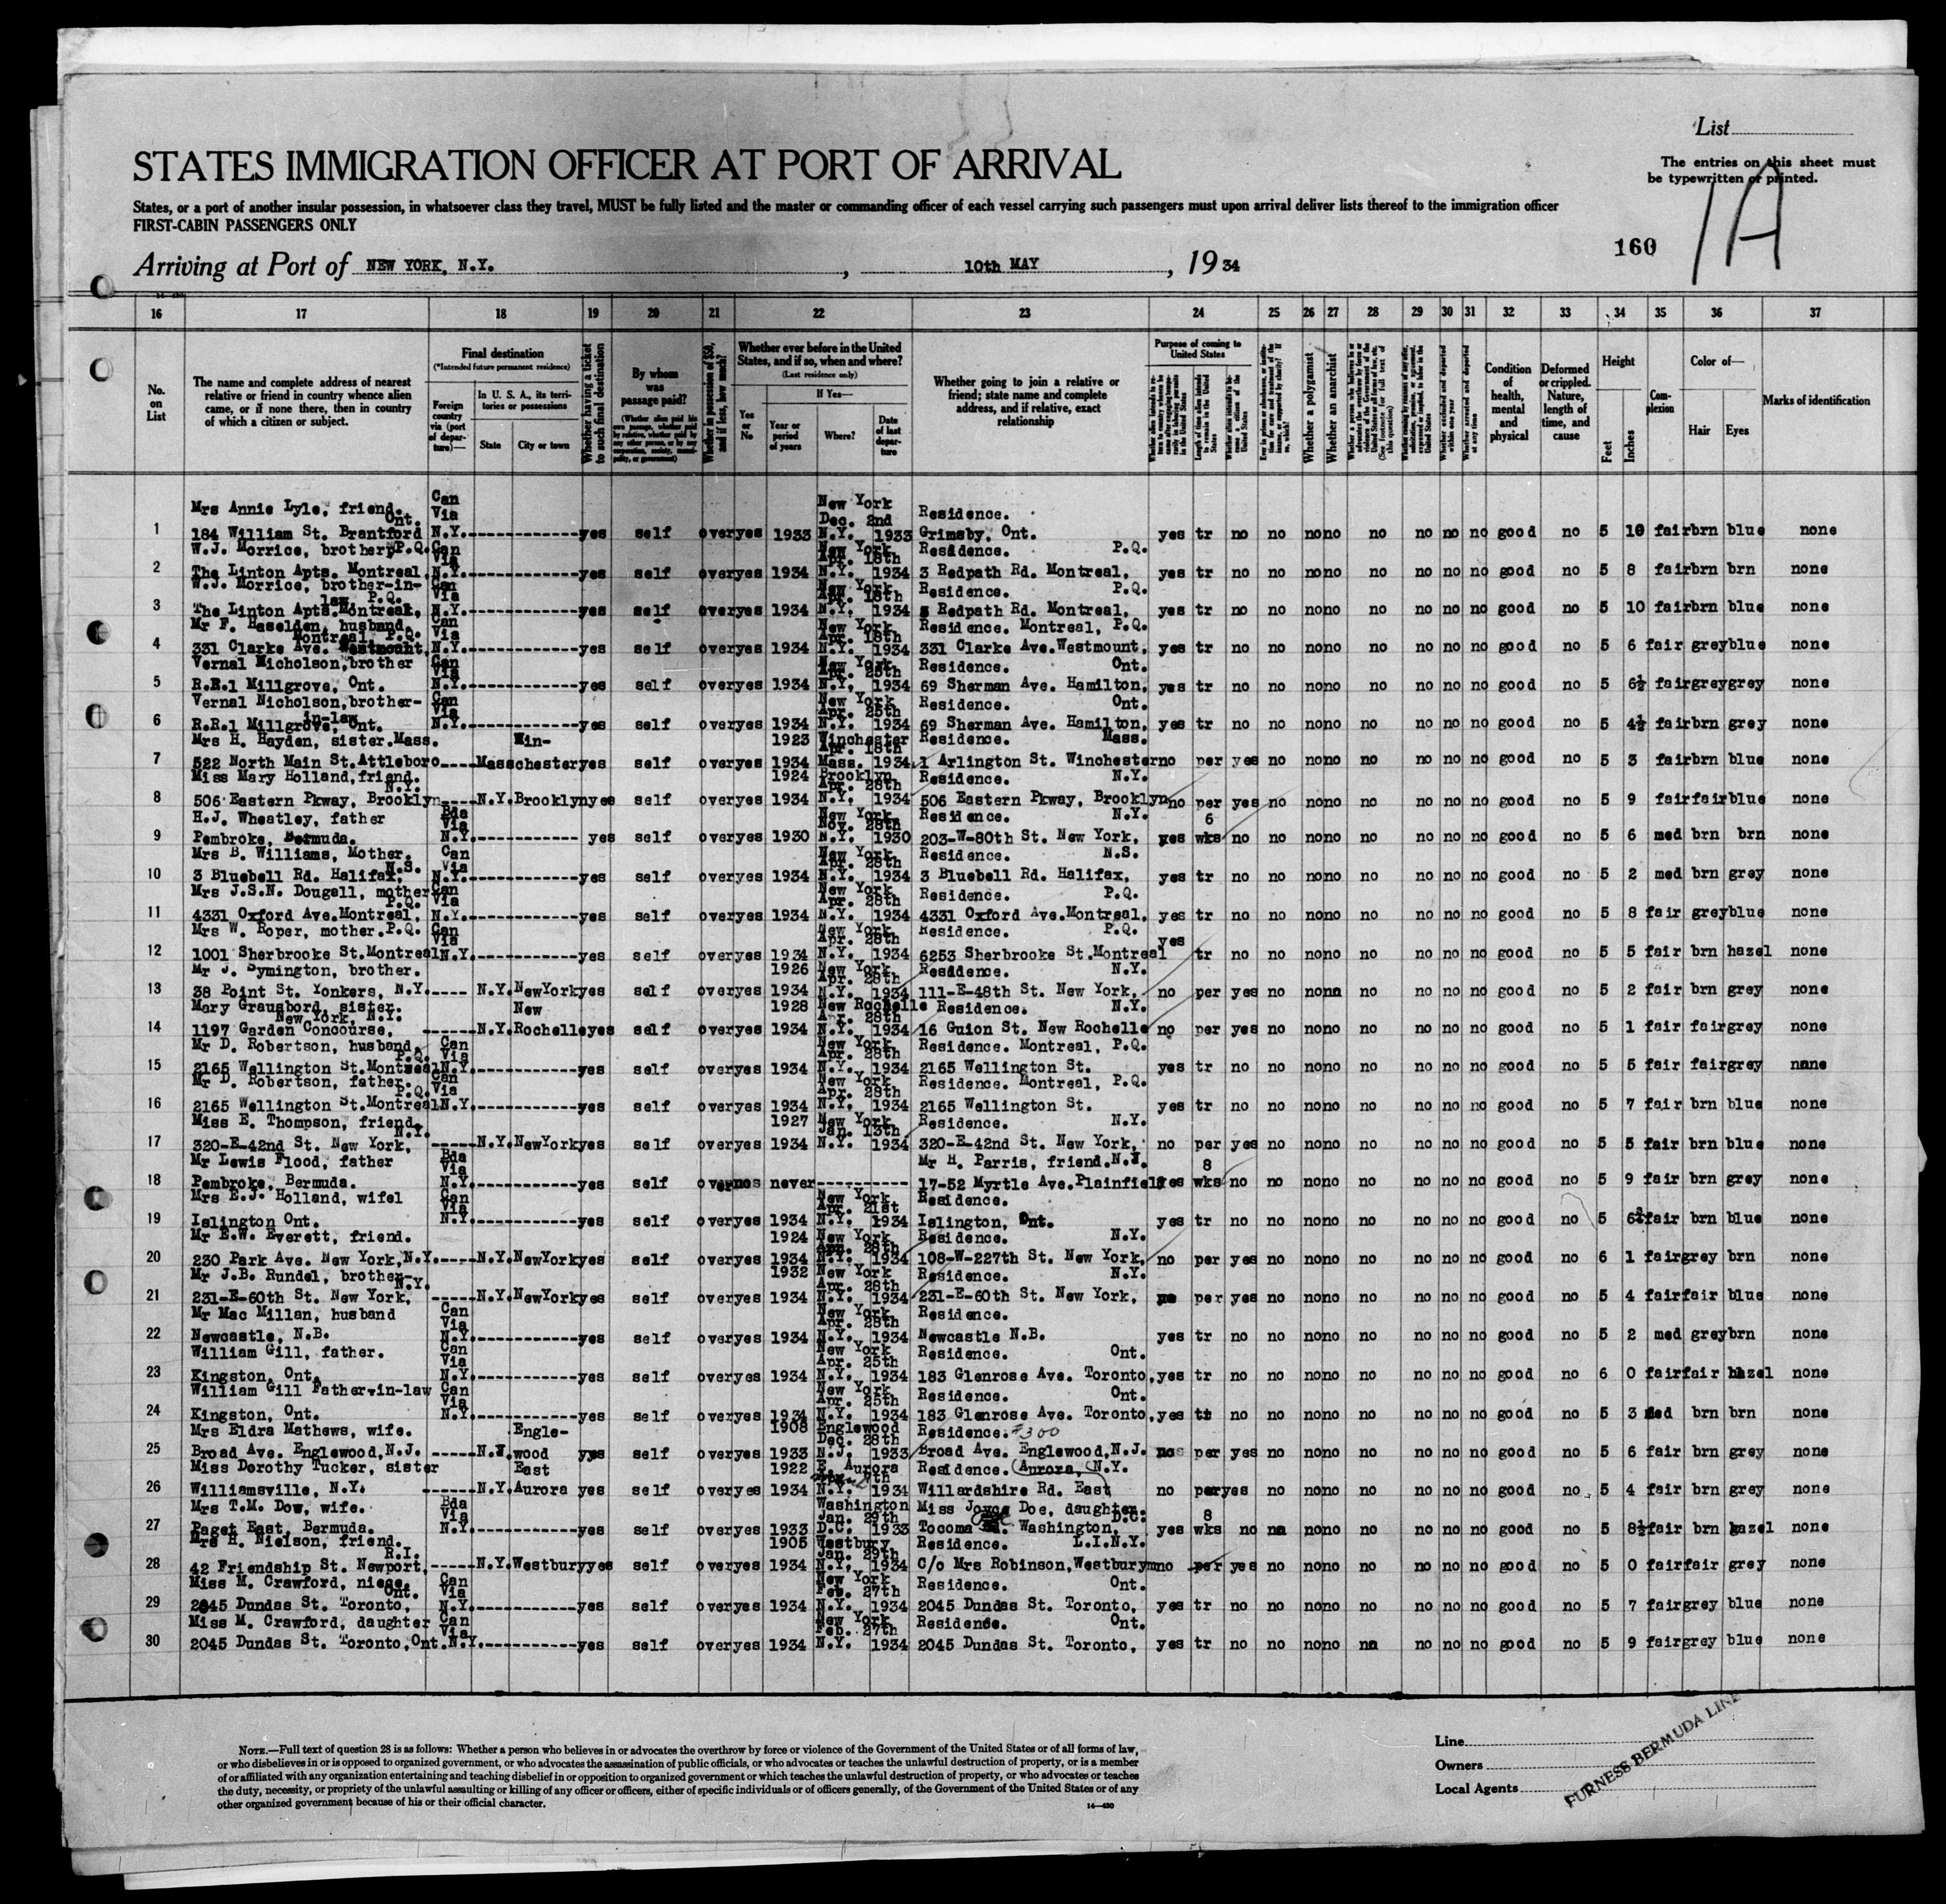 List
The entries on this sheet must
be typewritten or printed.
STATES IMMIGRATION OFFICER AT PORT OF ARRIVAL
1A
States, or a port of another insular possession, in whatsoever class they travel, MUST be fully listed and the master or commanding officer of each vessel carrying such passengers must upon arrival deliver lists thereof to the immigration officer
FIRST-CABIN PASSENGERS ONLY
160
Arriving at Port of NEW YORK, N.Y. , 10th MAY , 19 34
16 17 18 19 20 21 22 23 24 25 26 27 28 29 30 31 32 33 34 35 36 37
No. on List
The name and complete address of nearest relative or friend in country whence alien came, or if none there, then in country of which a citizen or subject.
Final destination
(*Intended future permanent residence)
Foreign country via (port of departure)—
In U. S. A., its territories or possessions
State
City or town
Whether having a ticket to such final destination
By whom was passage paid?
Whether in possession of $50, and if less, how much?
Whether ever before in the United States, and if so, when and where?
(Last residence only)
Yes or No
If Yes—
Year or period of years
Where?
Date of last departure
Whether going to join a relative or friend; state name and complete address, and if relative, exact relationship
Purpose of coming to United States
Whether a polygamist
Whether an anarchist
Condition of health, mental and physical
Deformed or crippled. Nature, length of time, and cause
Height
Feet
Inches
Complexion
Color of—
Hair
Eyes
Marks of identification
Mrs Annie Lyle, friend. Can New York Residence.
Ont. Via Dec. 2nd
1 184 William St. Brantford N.Y.------------yes self over yes 1933 N.Y. 1933 Grimsby, Ont. yes tr no no no no no no no no good no 5 10 fair brn blue none
W.J. Morrice, brother P.Q. Can New York Residence. P.Q.
Via Apr. 18th
2 The Linton Apts. Montreal, N.Y.------------yes self over yes 1934 N.Y. 1934 3 Redpath Rd. Montreal, yes tr no no no no no no no no good no 5 8 fair brn brn none
W.J. Morrice, brother-in- Can New York Residence. P.Q.
law, P.Q. Via Apr. 18th
3 The Linton Apts. Montreal, N.Y.------------yes self over yes 1934 N.Y. 1934 Redpath Rd. Montreal, yes tr no no no no no no no no good no 5 10 fair brn blue none
Mr F. Haselden, husband. Can New York Residence. Montreal, P.Q.
Montreal, P.Q. Via Apr. 18th
4 331 Clarke Ave. Westmount, N.Y.------------yes self over yes 1934 N.Y. 1934 331 Clarke Ave. Westmount, yes tr no no no no no no no no good no 5 6 fair grey blue none
Vernal Nicholson, brother Can New York Residence. Ont.
Via Apr. 25th
5 R.R.1 Millgrove, Ont. N.Y.------------yes self over yes 1934 N.Y. 1934 69 Sherman Ave. Hamilton, yes tr no no no no no no no no good no 5 6½ fair grey grey none
Vernal Nicholson, brother- Can New York Residence. Ont.
in-law Via Apr. 25th
6 R.R.1 Millgrove, Ont. N.Y.------------yes self over yes 1934 N.Y. 1934 69 Sherman Ave. Hamilton, yes tr no no no no no no no no good no 5 4½ fair brn grey none
Mrs H. Hayden, sister. Mass. Win- 1923 Winchester Residence. Mass.
Apr. 18th
7 522 North Main St. Attleboro----Mass chester yes self over yes 1934 Mass. 1934 1 Arlington St. Winchester no per yes no no no no no no no good no 5 3 fair brn blue none
Miss Mary Holland, friend. 1924 Brooklyn Residence. N.Y.
N.Y. Apr. 28th
8 506 Eastern Pkway, Brooklyn----N.Y. Brooklyn yes self over yes 1934 N.Y. 1934 506 Eastern Pkway, Brooklyn no per yes no no no no no no no good no 5 9 fair fair blue none
H.J. Wheatley, father Bda New York Residence. N.Y. 6
Via Nov. 28th
9 Pembroke, Bermuda. N.Y.----------- yes self over yes 1930 N.Y. 1930 203-W-80th St. New York, yes wks no no no no no no no no good no 5 6 med brn brn none
Mrs B. Williams, Mother. Can New York Residence. N.S.
N.S. Via Apr. 28th
10 3 Bluebell Rd. Halifax, N.Y.------------yes self over yes 1934 N.Y. 1934 3 Bluebell Rd. Halifax, yes tr no no no no no no no no good no 5 2 med brn grey none
Mrs J.S.N. Dougall, mother Can New York Residence. P.Q.
P.Q. Via Apr. 28th
11 4331 Oxford Ave. Montreal, N.Y.------------yes self over yes 1934 N.Y. 1934 4331 Oxford Ave. Montreal, yes tr no no no no no no no no good no 5 8 fair grey blue none
Mrs W. Roper, mother. P.Q. Can New York Residence. P.Q.
Via Apr. 28th yes
12 1001 Sherbrooke St. Montreal N.Y.------------yes self over yes 1934 N.Y. 1934 6253 Sherbrooke St. Montreal tr no no no no no no no no good no 5 5 fair brn hazel none
Mr J. Symington, brother. 1926 New York Residence. N.Y.
Apr. 28th
13 38 Point St. Yonkers, N.Y.----- N.Y. New York yes self over yes 1934 N.Y. 1934 111-E-48th St. New York, no per yes no no nn no no no no good no 5 2 fair brn grey none
Mary Grausbord, sister. New 1928 New Rochelle Residence. N.Y.
New York, N.Y. Apr. 28th
14 1197 Garden Concourse, ------N.Y. Rochelle yes self over yes 1934 N.Y. 1934 16 Guion St. New Rochelle no per yes no no no no no no no good no 5 1 fair fair grey none
Mr D. Robertson, husband. Can New York Residence. Montreal, P.Q.
P.Q. Via Apr. 28th
15 2165 Wellington St. Montreal N.Y.------------yes self over yes 1934 N.Y. 1934 2165 Wellington St. yes tr no no no no no no no no good no 5 5 fair fair grey none
Mr D. Robertson, father. Can New York Residence. Montreal, P.Q.
P.Q. Via Apr. 28th
16 2165 Wellington St. Montreal N.Y.------------yes self over yes 1934 N.Y. 1934 2165 Wellington St. yes tr no no no no no no no no good no 5 7 fair brn blue none
Miss E. Thompson, friend. 1927 New York Residence. N.Y.
N.Y. Jan. 13th
17 320-E-42nd St. New York, -----N.Y. New York yes self over yes 1934 N.Y. 1934 320-E-42nd St. New York, no per yes no no no no no no no good no 5 5 fair brn blue none
Mr Lewis Flood, father Bda Mr H. Parris, friend. N.J. 8
Via
18 Pembroke, Bermuda. N.Y.------------yes self over no never---------- 17-52 Myrtle Ave. Plainfield yes wks no no no no no no no no good no 5 9 fair brn grey none
Mrs E.J. Holland, wife Can New York Residence.
Via Apr. 21st
19 Islington Ont. N.Y.------------yes self over yes 1934 N.Y. 1934 Islington, Ont. yes tr no no no no no no no no good no 5 6 fair brn blue none
Mr E.W. Everett, friend. 1924 New York Residence. N.Y.
Apr. 28th
20 230 Park Ave. New York, N.Y.-----N.Y. New York yes self over yes 1934 N.Y. 1934 108-W-227th St. New York, no per yes no no no no no no no good no 6 1 fair grey brn none
Mr J.B. Rundel, brother. 1932 New York Residence. N.Y.
N.Y. Apr. 28th
21 231-E-60th St. New York, -----N.Y. New York yes self over yes 1934 N.Y. 1934 231-E-60th St. New York, no per yes no no no no no no no good no 5 4 fair fair blue none
Mr Mac Millan, husband Can New York Residence.
Via Apr. 28th
22 Newcastle, N.B. N.Y.------------yes self over yes 1934 N.Y. 1934 Newcastle N.B. yes tr no no no no no no no no good no 5 2 med grey brn none
William Gill, father. Can New York Residence. Ont.
Via Apr. 25th
23 Kingston, Ont. N.Y.------------yes self over yes 1934 N.Y. 1934 183 Glenrose Ave. Toronto, yes tr no no no no no no no no good no 6 0 fair fair hazel none
William Gill Father-in-law Can New York Residence. Ont.
Via Apr. 25th
24 Kingston, Ont. N.Y.------------yes self over yes 1934 N.Y. 1934 183 Glenrose Ave. Toronto, yes tr no no no no no no no no good no 5 3 Med brn brn none
Mrs Eldra Mathews, wife. Engle- 1908 Englewood Residence. $300
Dec. 28th
25 Broad Ave. Englewood, N.J. -----N.J. wood yes self over yes 1933 N.J. 1933 Broad Ave. Englewood, N.J. no per yes no no no no no no no good no 5 6 fair brn grey none
Miss Dorothy Tucker, sister East 1922 E. Aurora Residence. (Aurora, N.Y.
26 Williamsville, N.Y. ------N.Y. Aurora yes self over yes 1934 N.Y. 1934 Willardshire Rd. East no per yes no no no no no no no good no 5 4 fair brn grey none
Mrs T.M. Dow, wife. Bda Washington Miss Joyce Doe, daughter. 8
Via Jan. 29th D.C.
27 Paget East, Bermuda. N.Y.------------yes self over yes 1933 D.C. 1933 Tocoma Washington, yes wks no na no no no no no no good no 5 8½ fair brn hazel none
Mrs H. Nielson, friend. 1905 Westbury Residence. L.I.N.Y.
R.I. Jan. 29th
28 42 Friendship St. Newport, -----N.Y. Westbury yes self over yes 1934 N.Y. 1934 C/o Mrs Robinson, Westbury no per yes no no no no no no no good no 5 0 fair fair grey none
Miss M. Crawford, niece. Can New York Residence. Ont.
Ont. Via Feb. 27th
29 2045 Dundas St. Toronto, N.Y.------------yes self over yes 1934 N.Y. 1934 2045 Dundas St. Toronto, yes tr no no no no no no no no good no 5 7 fair grey blue none
Miss M. Crawford, daughter Can New York Residence. Ont.
Via Feb. 27th
30 2045 Dundas St. Toronto, Ont. N.Y.------------yes self over yes 1934 N.Y. 1934 2045 Dundas St. Toronto, yes tr no no no no na no no no good no 5 9 fair grey blue none
NOTE.—Full text of question 28 is as follows: Whether a person who believes in or advocates the overthrow by force or violence of the Government of the United States or of all forms of law,
or who disbelieves in or is opposed to organized government, or who advocates the assassination of public officials, or who advocates or teaches the unlawful destruction of property, or is a member
of or affiliated with any organization entertaining and teaching disbelief in or opposition to organized government or which teaches the unlawful destruction of property, or who advocates or teaches
the duty, necessity, or propriety of the unlawful assaulting or killing of any officer or officers, either of specific individuals or of officers generally, of the Government of the United States or of any
other organized government because of his or their official character.
14—430
Line
Owners
Local Agents
FURNESS BERMUDA LINE